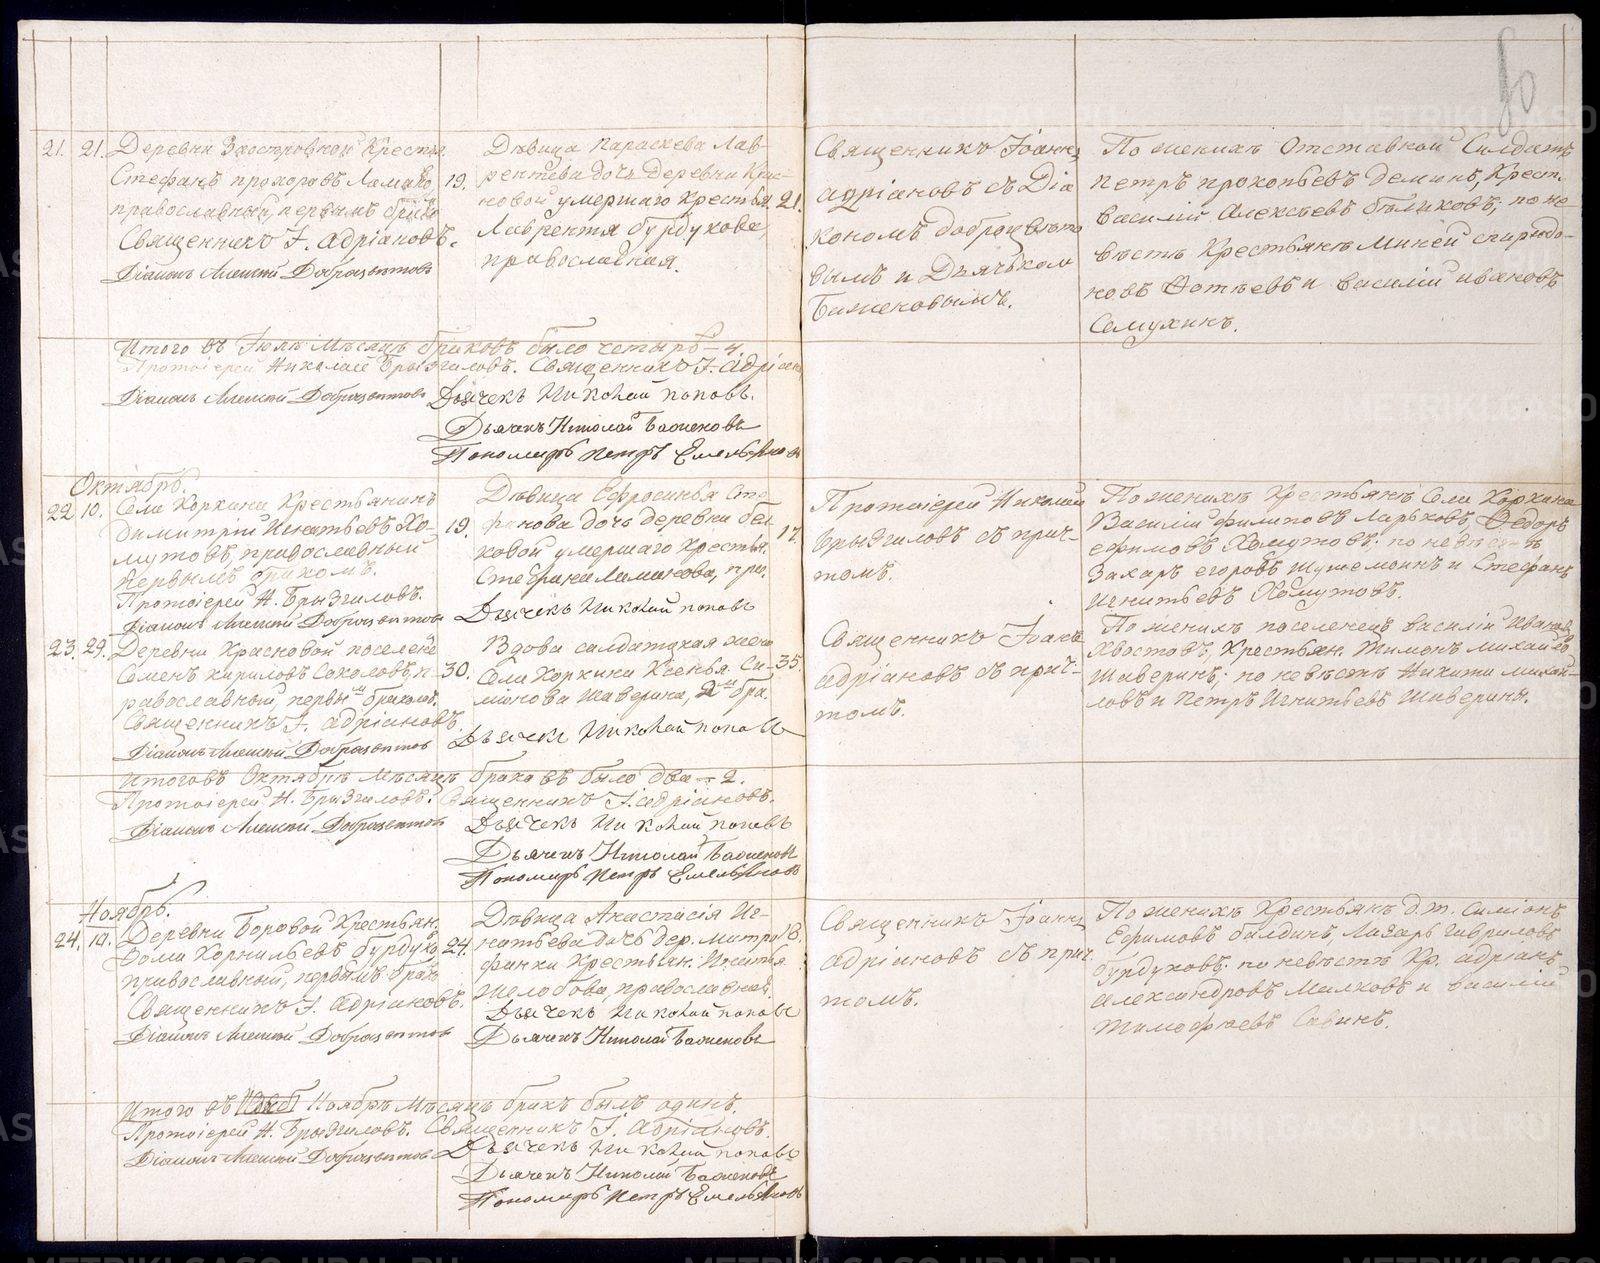 80
21. 21. Деревни Заостровной Крестья.
Стефанъ Прохоровъ Ламано
православный, первымъ бракомъ
Священникъ І. Адріановъ.
Діаконъ Алексѣй Доброцвѣтовъ
19.
Дѣвица Параскева Лав-
рентіева дочь деревни Кра-
новой умершаго Крестья.
Лаврентія Бурдукова,
православная.
21.
Священникъ Іоаннъ
Адріановъ съ Діа
кономъ Доброцвѣто
вымъ и Дьячькомъ
Баженовымъ.
По женихѣ Отставной Солдатъ
Петръ Прокопьевъ Деминъ, Крест.
Василій Алексѣевъ Бѣликовъ; по не
вѣстѣ Крестьянѣ Миней Спиридо-
новъ Фотѣевъ и Василій Ивановъ
Семухинъ.
Итого въ Іюлѣ Мѣсяцѣ браковъ было четыре 4.
Протоіерей Николай Брызгаловъ. Священникъ І. Адріановъ
Діаконъ Алексѣй Доброцвѣтовъ Дьячекъ Николай Поповъ.
Дьячекъ Николай Баженовъ
Пономарь Петръ Емельяновъ
Октябрь.
22. 10. Села Коркина Крестьянинъ
Димитрій Игнатьевъ Хо-
мутовъ, православный
первымъ бракомъ.
Протоіерей Н. Брызгаловъ.
Діаконъ Алексѣй Доброцвѣтовъ
19.
Дѣвица Ефросинья Сте
фанова дочь деревни Бѣл
ковой умершаго Крестья.
Стефана Ламанова, пра.
Дьячекъ Николай Поповъ
17.
Протоіерей Николай
Брызгаловъ съ прич-
томъ.
По женихѣ Крестьянѣ Села Коркина
Василій Филиповъ Ларьковъ, Федоръ
Ефимовъ Хомутовъ; по невѣстѣ
Захаръ Егоровъ и Стефанъ
Игнатьевъ Хомутовъ.
23. 29. Деревни Красновой поселенецъ
Семенъ Кириловъ Соколовъ, п-
равославный, первымъ бракомъ.
Священникъ І. Адріановъ.
Діаконъ Алексѣй Доброцвѣтовъ
30.
Вдова солдатская жена
Села Коркина Ксенья Си-
мионова Шаверина, 2мъ бра.
Дьячекъ Николай Поповъ
35.
Священникъ Іоаннъ
Адріановъ съ прич-
томъ.
По женихѣ поселенецъ Василій Ивановъ
Хвостовъ, Крестьян. Тимонъ Михайловъ
Шаверинъ; по невѣстѣ Никита Михай-
ловъ и Петръ Игнатьевъ Шаверины.
Итого въ Октябрѣ Мѣсяцѣ браковъ было два 2.
Протоіерей Н. Брызгаловъ. Священникъ І. Адріановъ.
Діаконъ Алексѣй Доброцвѣтовъ Дьячекъ Николай Поповъ
Дьячекъ Николай Баженовъ
Пономарь Петръ Емельяновъ
Ноябрь.
24. 10. Деревни Боровой Крестьян.
Фома Корнильевъ Бурдуко.
православный, первымъ брак
Священникъ І. Адріановъ.
Діаконъ Алексѣй Доброцвѣтовъ
24.
Дѣвица Анастасія Иг-
натьева дочь дер. Митро
фанки Крестьян. Игнатія
Желобова, православная.
Дьячекъ Николай Поповъ
Дьячекъ Николай Баженовъ
18.
Священникъ Іоаннъ
Адріановъ съ прич.
томъ.
По женихѣ Крестьянѣ д. т. Симіонъ
Ефимовъ Балдинъ, Лазарь Гавриловъ
Бурдуковъ; по невѣстѣ Кр. Адріанъ
Александровъ Малковъ и Василій
Тимофѣевъ Савинъ.
Итого въ Ноябрѣ Мѣсяцѣ бракъ былъ одинъ.
Протоіерей Н. Брызгаловъ. Священникъ І. Адріановъ.
Діаконъ Алексѣй Доброцвѣтовъ Дьячекъ Николай Поповъ
Дьячекъ Николай Баженовъ
Пономарь Петръ Емельяновъ